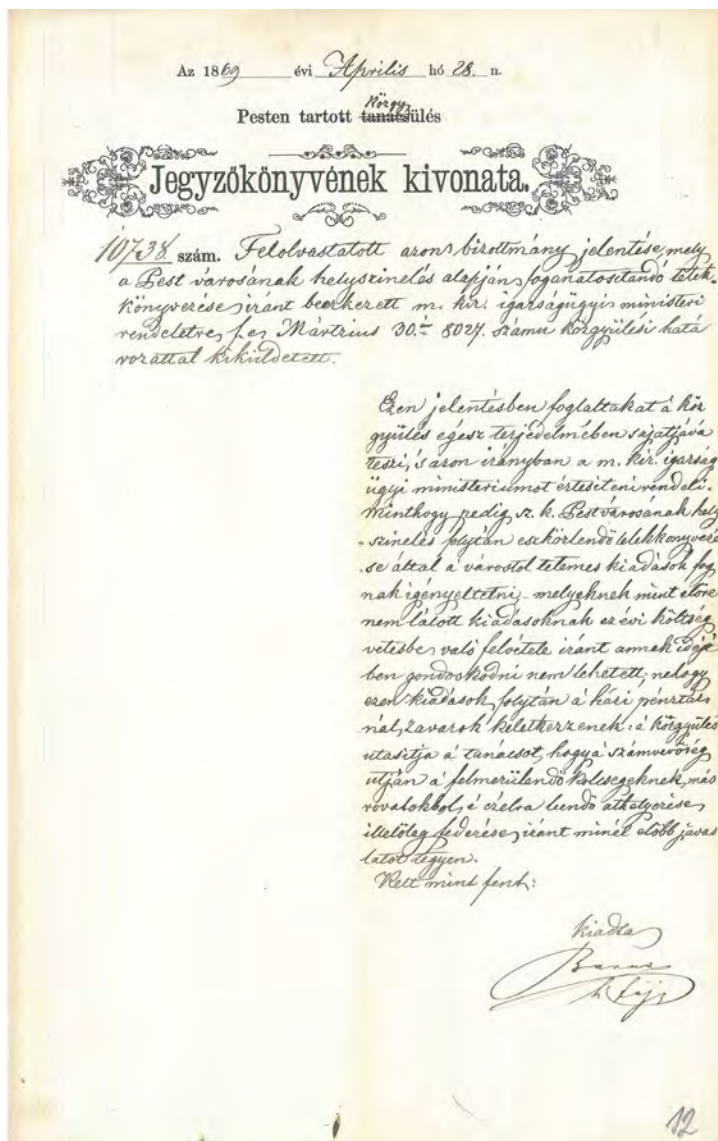 Az 1869 évi Április hó 28. n.
Közgy
Pesten tartott tanácsülés
Jegyzőkönyvének kivonata.
10738. szám. Felolvastatott azon bizottmány jelentése, mely
a Pest városának helyszinelés alapján foganatositandó telek-
könyvezése iránt beérkezett m. kir. igazságügyi ministeri
rendeletre f. e. Mártzius 30.án 8027. számu közgyülési hatá
rozattal kiküldetett.
Ezen jelentésben foglaltakat a köz
gyülés egész terjedelmében sajátjává
teszi, s azon irányban a m. kir. igazság
ügyi ministeriumot értesiteni rendeli.
Minthogy pedig sz. k. Pest városának hely
-szinelés folytán eszközlendő telekkönyvezé
-se által a várostol tetemes kiadások fog
nak igényeltetni, - melyeknek mint előre
nem látott kiadásoknak ez évi költség
vetésbe való felvétele iránt annak idejé
ben gondoskodni nem lehetett; nehogy
ezen kiadások folytán a házi pénztár
nál zavarok keletkezzenek: a közgyülés
utasitja a tanácsot, hogy a számvevőség
utján a felmerülendő költségeknek más
rovatokbol, e czélra leendő áthelyezése,
illetőleg fedezése iránt minél előbb javas
latot tegyen.
Kelt mint fent:
kiadta
12